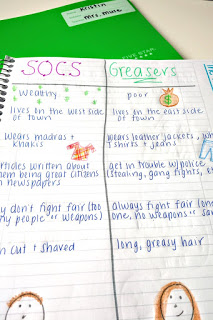 Kristin
mrs. muir
FIVE STAR
SOCS
Greasers
wealthy
poor
lives on the west side
of town
lives on the east side
of town
wears madras +
khakis
wears leather jackets,
T shirts + jeans
articles written about
them being great citizens
in newspapers
get in trouble w/police
(stealing, gang fights,
don't fight fair (too
people or weapons)
Always fight fair (
one, no weapons
cut + shaved
long, greasy hair